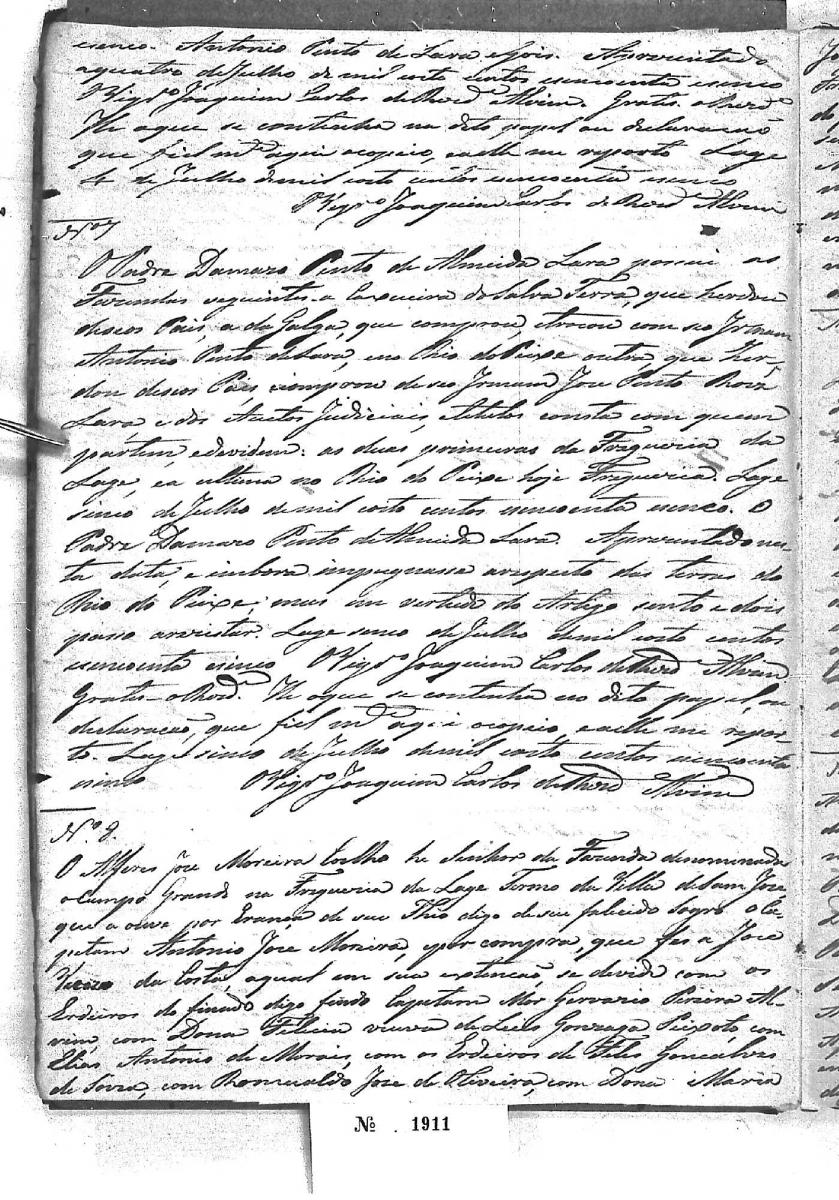 esinco. Antonio Pinto de Lara e Gois. Aprezentado
aquatro de Julho de mil oito centos e sincoenta esinco
O Vigr.º Joaquim Carlos de Rezd.e Alvim. Gratis. o Rezd.e
He oque se continha na dito papel ou declaração
que fiel m.e aqui o copeio, e aelle me reporto. Lage
4 de Julho de mil oito centos e sincoenta e sinco
O Vigr.º Joaquim Carlos de Rezd.e Alvim
N.º 7
O Padre Damazo Pinto de Almeida Lara possui as
Fazendas seguintes a Caxueira do Salva Terra, que herdou
de seos Pais, a da Galga, que comprou, etrocou com seo Irmam
Antonio Pinto de Lara, e no Rio do Peixe outra, que her-
dou de seos Pais e comprou de seo Irmam Joze Pinto
Lara e dos Autos Judiciais, etitulos consta com quem
partem, edevidem: as duas primeiras da Freguezia da
Lage, ea ultima no Rio do Peixe hoje Freguezia. Lage
sinco de Julho de mil oito centos e sincoenta esinco. O
Padre Damazo Pinto de Almeida Lara. Aprezentado nes-
ta data, e imbora impugnasse arespeito das terras do
Rio do Peixe; mas em vertude do Artigo sento e dois
passo a rezistar. Lage sinco de Julho de mil oito centos
e sincoenta esinco O Vigr.º Joaquim Carlos de Rezd.e Alvim
Gratis o Rezd.e He oque se continha no dito papel, ou
declaração, que fiel m.e aqui o copeio, e aelle me repor-
to. Lage sinco de Julho de mil oito centos e sincoenta
esinco O Vigr.º Joaquim Carlos de Rezd.e Alvim
N.º 8.
O Alferes Joze Moreira Coelho he Senhor da Fazenda denominada
o Campo Grande na Freguezia da Lage Termo da Villa de Sam Joze,
que a ouve por Erança de seu Thio digo de seu falecido Sogro o Ca-
petam Antonio Joze Moreira, e por compra, que fes a Joze
da Costa, aqual em sua extenção se devide com os
Erdeiros do finado digo findo Capetam Mor Gervazio Pereira Al-
vim, com Dona Felicia veuva de Luis Gonzaga Peixoto, com
Elias Antonio de Morais, com os Erdeiros de Felis Gonçalves
de Souza, com Romualdo Joze de Oliveira, com Dona Maria
Nº 1911